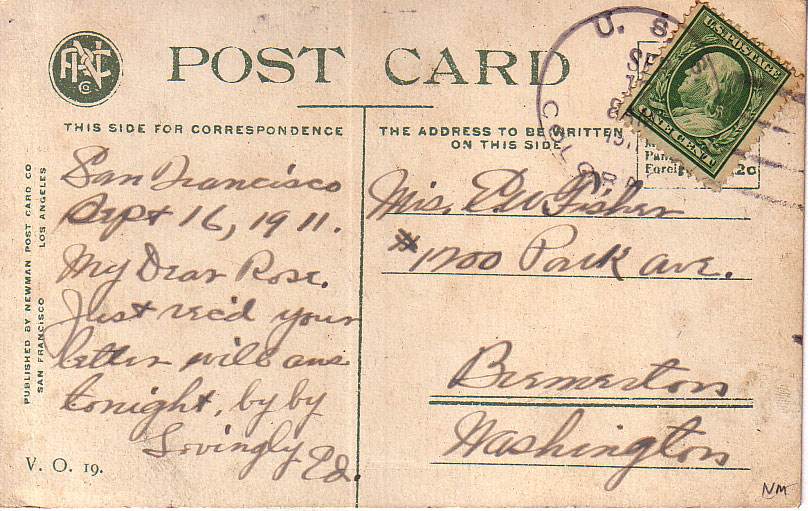 POST CARD
THIS SIDE FOR CORRESPONDENCE
THE ADDRESS TO BE WRITTEN
ON THIS SIDE
U. S.
U.S. POSTAGE
ONE CENT
San Francisco
Sept 16, 1911.
My Dear Rose.
Just rec'd your
letter will ans
tonight, by by
Lovingly Ed.
Mrs. E. W. Fisher
#1700 Park ave.
Bremerton
Washington
PUBLISHED BY NEWMAN POST CARD CO
SAN FRANCISCO LOS ANGELES
V. O. 19.
NM